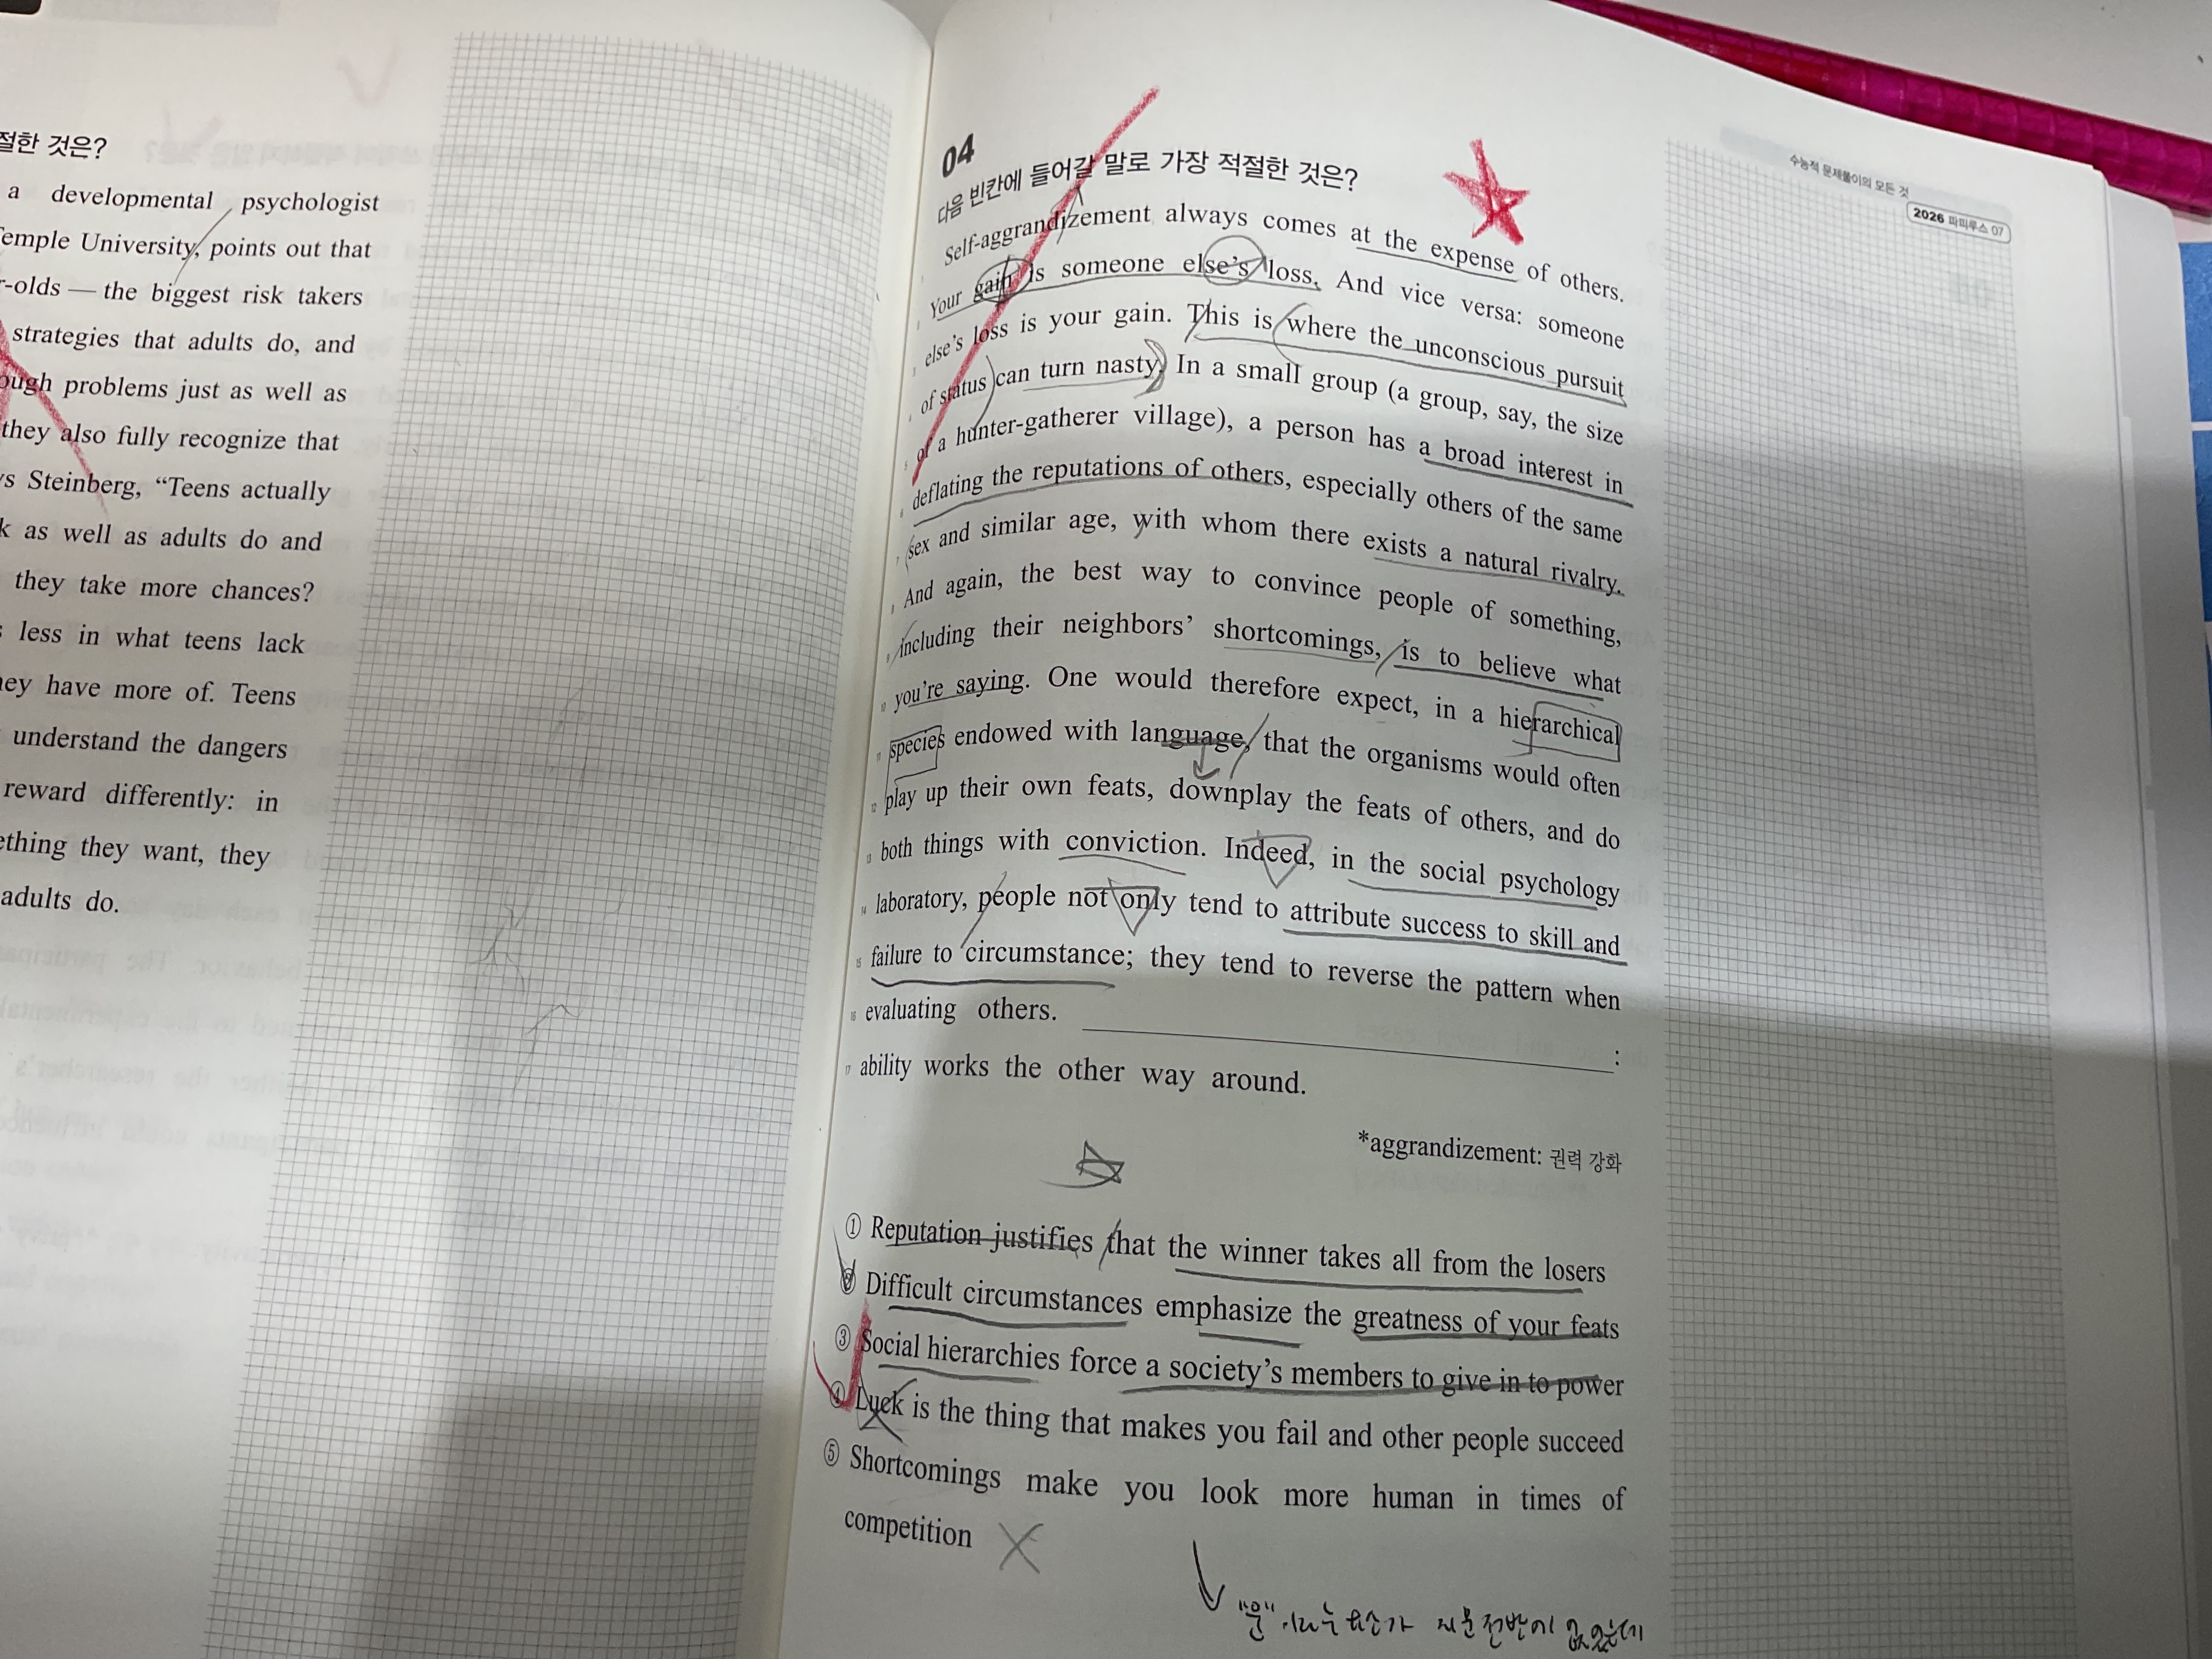 절한 것은?
a developmental psychologist
Temple University, points out that
-olds — the biggest risk takers
strategies that adults do, and
ough problems just as well as
they also fully recognize that
ys Steinberg, “Teens actually
k as well as adults do and
they take more chances?
less in what teens lack
hey have more of. Teens
understand the dangers
reward differently: in
ething they want, they
adults do.
수능적 문제풀이의 모든 것
2026 파피루스 07
04
다음 빈칸에 들어갈 말로 가장 적절한 것은?
Self-aggrandizement always comes at the expense of others.
Your gain is someone else’s loss. And vice versa: someone
else’s loss is your gain. This is where the unconscious pursuit
of status can turn nasty. In a small group (a group, say, the size
of a hunter-gatherer village), a person has a broad interest in
deflating the reputations of others, especially others of the same
sex and similar age, with whom there exists a natural rivalry.
And again, the best way to convince people of something,
including their neighbors’ shortcomings, is to believe what
you’re saying. One would therefore expect, in a hierarchical
species endowed with language, that the organisms would often
play up their own feats, downplay the feats of others, and do
both things with conviction. Indeed, in the social psychology
laboratory, people not only tend to attribute success to skill and
failure to circumstance; they tend to reverse the pattern when
evaluating others. :
ability works the other way around.
*aggrandizement: 권력 강화
① Reputation justifies that the winner takes all from the losers
② Difficult circumstances emphasize the greatness of your feats
③ Social hierarchies force a society’s members to give in to power
④ Luck is the thing that makes you fail and other people succeed
⑤ Shortcomings make you look more human in times of
competition
"운" 이라는 요소가 지문 전반에 없었는데